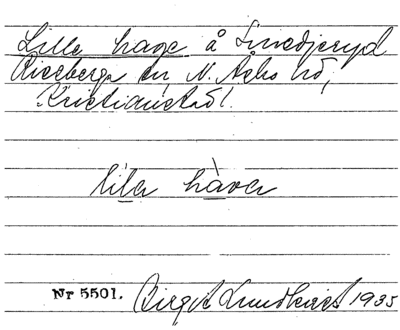 Lille hage å Linedjeryd
Riseberga sn, N. Åsbo hd,
Kristianstads l.
lila håva
Nr 5501. Birgit Lundkvist 1935